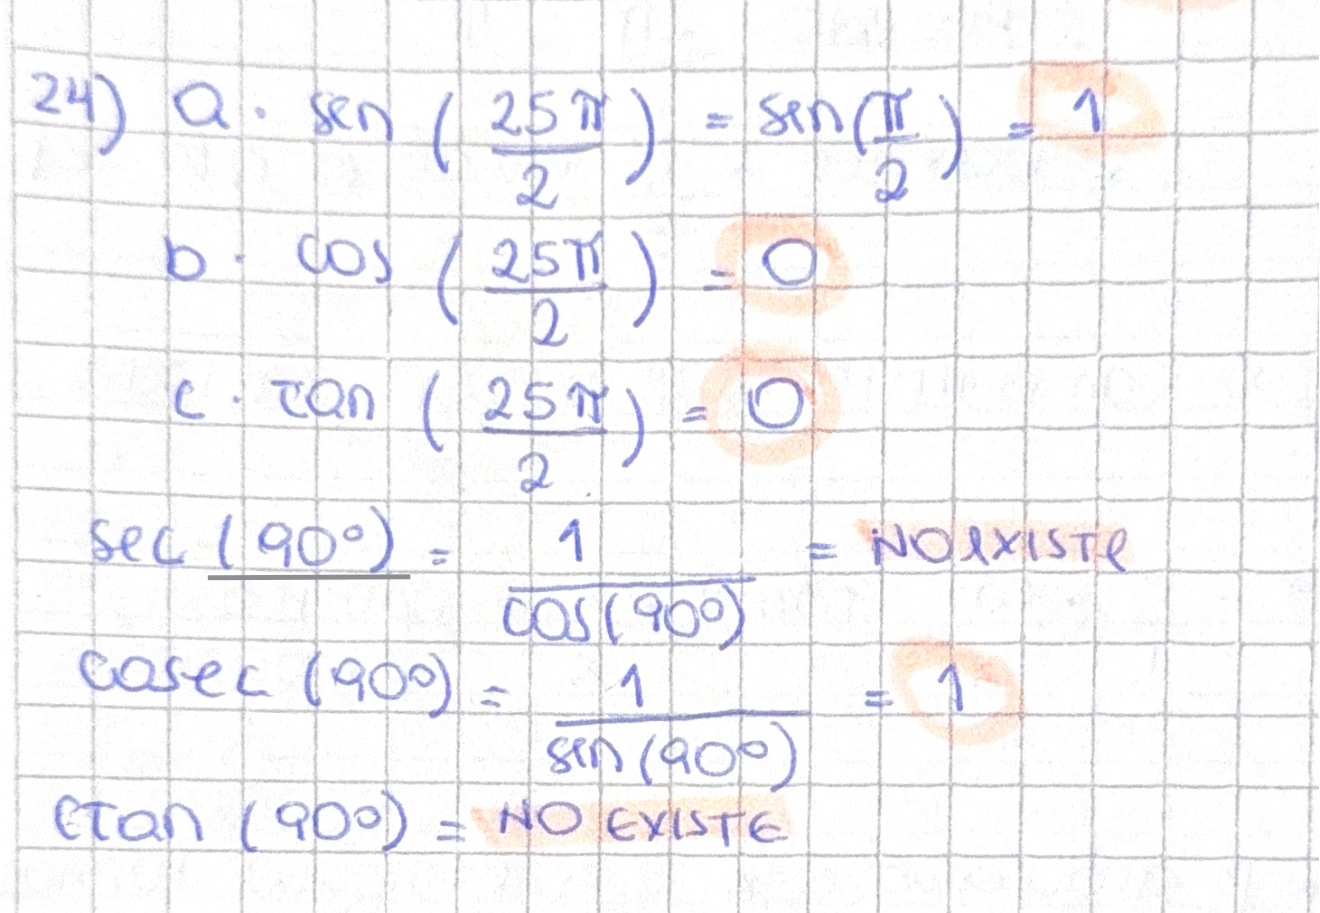 24) a. sen (25π/2) = sen(π/2) = 1
b. cos (25π/2) = 0
c. tan (25π/2) = 0
sec (90°) = 1/cos(90°) = NO EXISTE
cosec (90°) = 1/sen(90°) = 1
ctan (90°) = NO EXISTE